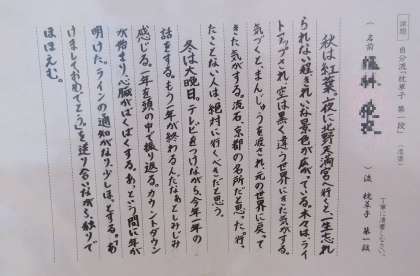 課題 自分流「枕草子 第一段」(清書)
丁寧に清書しなさい。
(名前 )流 枕草子 第一段
秋は紅葉。夜に北野天満宮へ行くと、一生忘れ
られない程きれいな景色が広がっている。木々は、ライ
トアップされ、空は黒く違う世界にきた気がする。
気づくと、まんじゅうを渡され元の世界に戻って
きた気がする。流石、京都の名所だと思った。行っ
たことない人は、絶対に行くべきだと思う。
冬は大晦日。テレビをつけながら、今年一年の
話をする。もう一年が終わるんだなぁとしみじみ
感じる。一年を頭の中で振り返る。カウントダウン
が始まり、心臓がばくばくする。あっという間に年が
明けた。ラインの通知がなり、少しほっとする。「あ
けましておめでとう」を送り合いながら、独りで
ほほえむ。